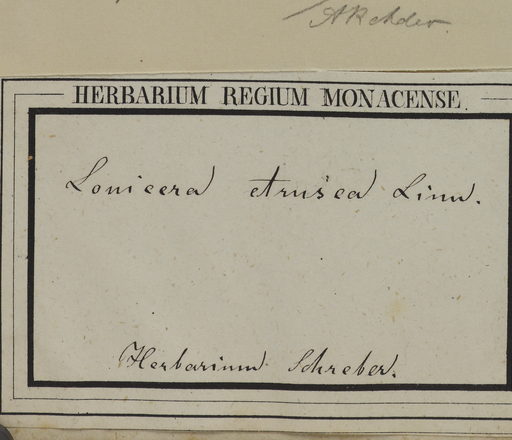 A Rehder.
HERBARIUM REGIUM MONACENSE.
Lonicera etrusca Linn.
Herbarium Schreber.